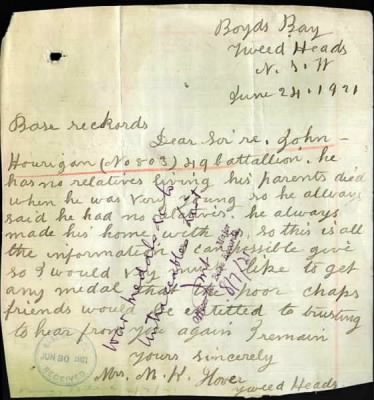 Boyds Bay
Tweed Heads
N. S. W
June 24. 1921
Base reckords
Dear Soi're. John
Hourigan (No 803) 49 battallion. he
has no relatives living his parents died
when he was very young so he allways
said he had no relatives. he always
made his home with so this is all
the information can possible give
so I would very much like to get
any medal that the poor chaps
friends would be entitled to trusting
to hear from you again I remain
Yours sincerely
Mrs. M. K. Hover
Tweed Heads
JUN 30 1921
RECEIVED
War medals